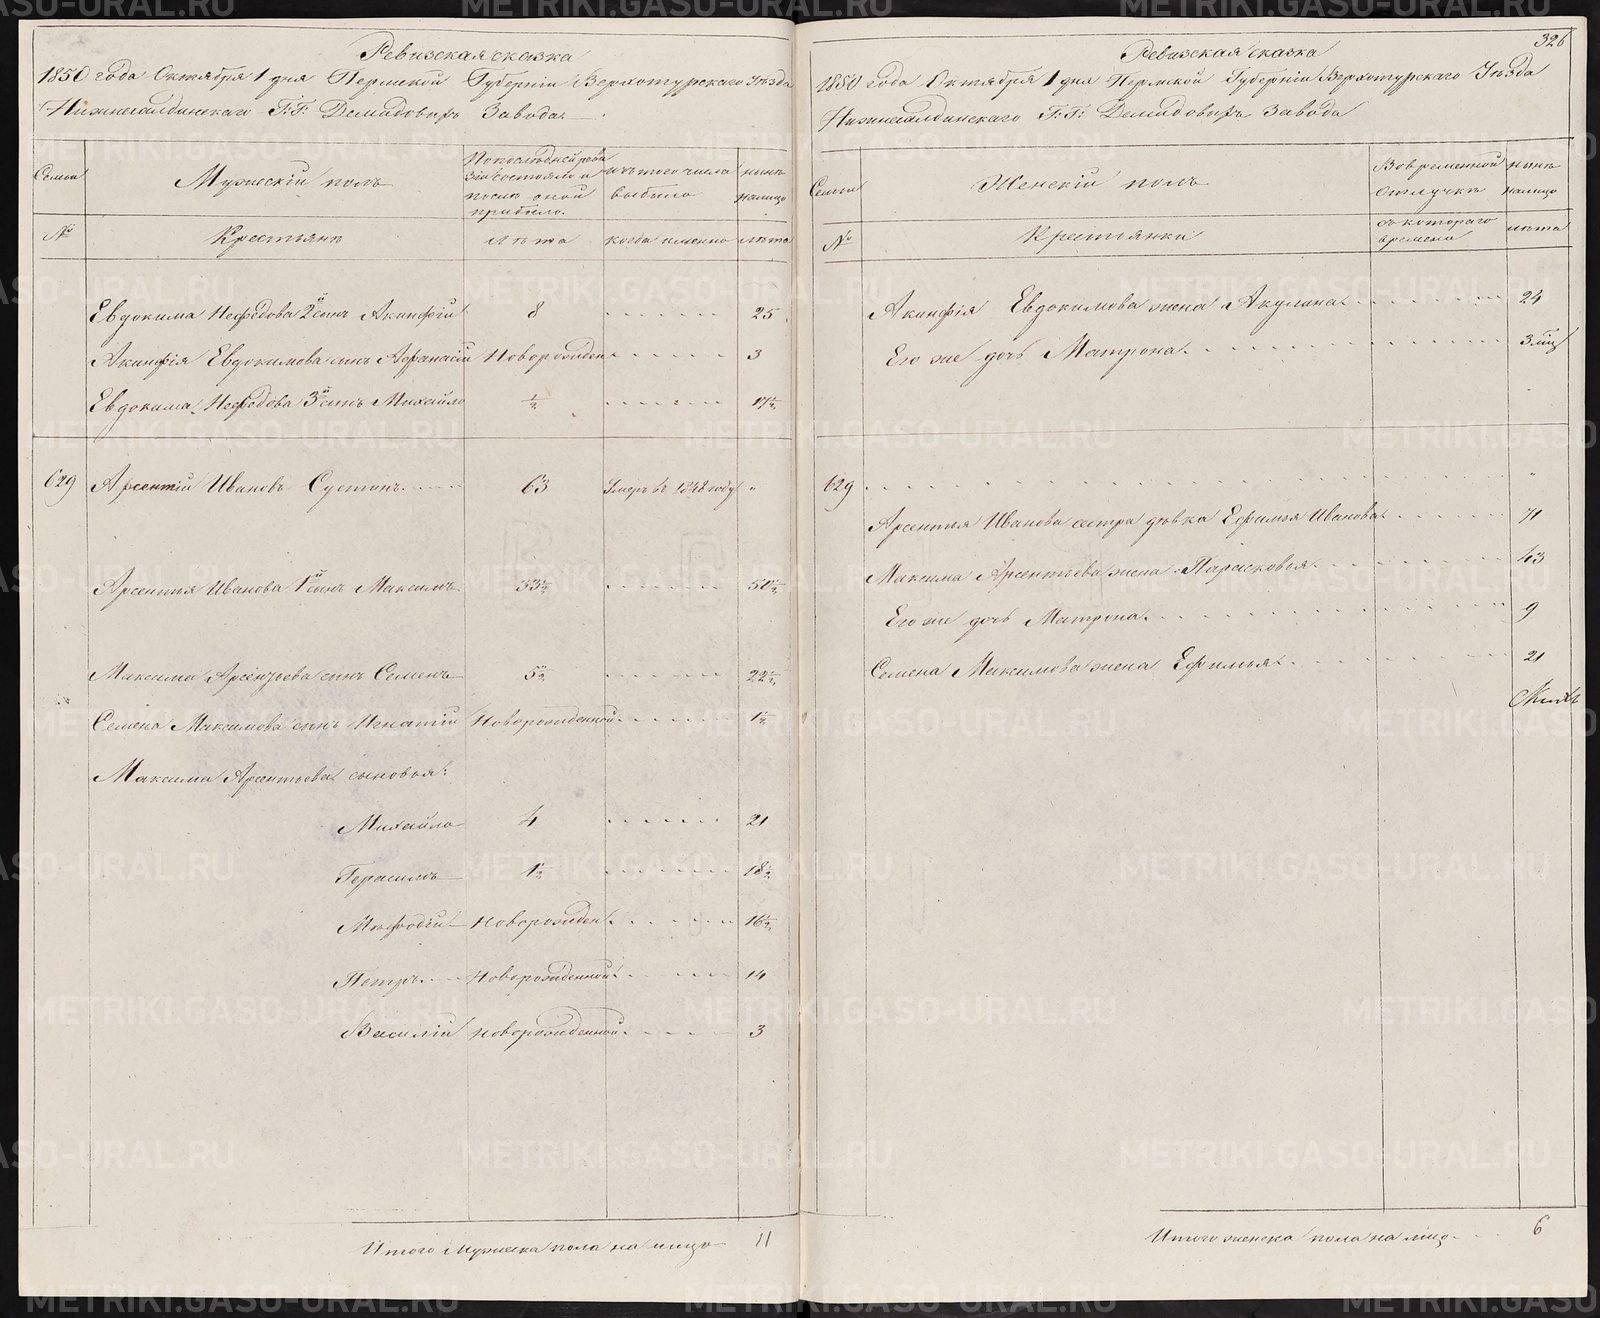 Ревизская сказка
1850 года Октября 1 дня Пермской Губерніи Верхотурскаго Уѣзда
Нижнесалдинскаго Г.Г. Демидовыхъ Завода.
Семьи
Мужескій полъ
По последней реви
зіи состояло и
после оной
прибыло.
изъ того числа
выбыло
нынѣ
налицо
№
Крестьянъ
лѣта
когда именно
лѣта
Евдокима Нефедова 2й сынъ Акинфій 8 25
Акинфія Евдокимова сынъ Афанасій Новорожден. 3
Евдокима Нефедова 3й сынъ Михайло ½ 17½
629 Арсентій Ивановъ Сустинъ 63 Умеръ въ 1848 году "
Арсентья Иванова 1й сынъ Максимъ 33½ 50½
Максима Арсентьева сынъ Семенъ 5½ 22½
Семена Максимова сынъ Игнатій Новорожденной 1½
Максима Арсентьева сыновья:
Михайло 4 21
Герасимъ 1½ 18½
Мефодій Новорожден. 16½
Петръ Новорожденной 14
Василій новорожденной 3
Итого мужеска пола на лицо 11
326
Ревизская сказка
1850 года Октября 1 дня Пермской Губерніи Верхотурскаго Уѣзда
Нижнесалдинскаго Г.Г. Демидовыхъ Завода
Семьи
Женскій полъ
Во временной
отлучкѣ
нынѣ
налицо
№
Крестьянки
съ котораго
времени
лѣта
Акинфія Евдокимова жена Акулина 24
Его же дочь Матрона 3 мѣц
629 "
Арсентья Иванова сестра дѣвка Ефимья Иванова 71
Максима Арсентьева жена Парасковья 43
Его же дочь Матрона 9
Семена Максимова жена Ефимья 21
Итого женска пола на лицо 6
METRIKI.GASO-URAL.RU